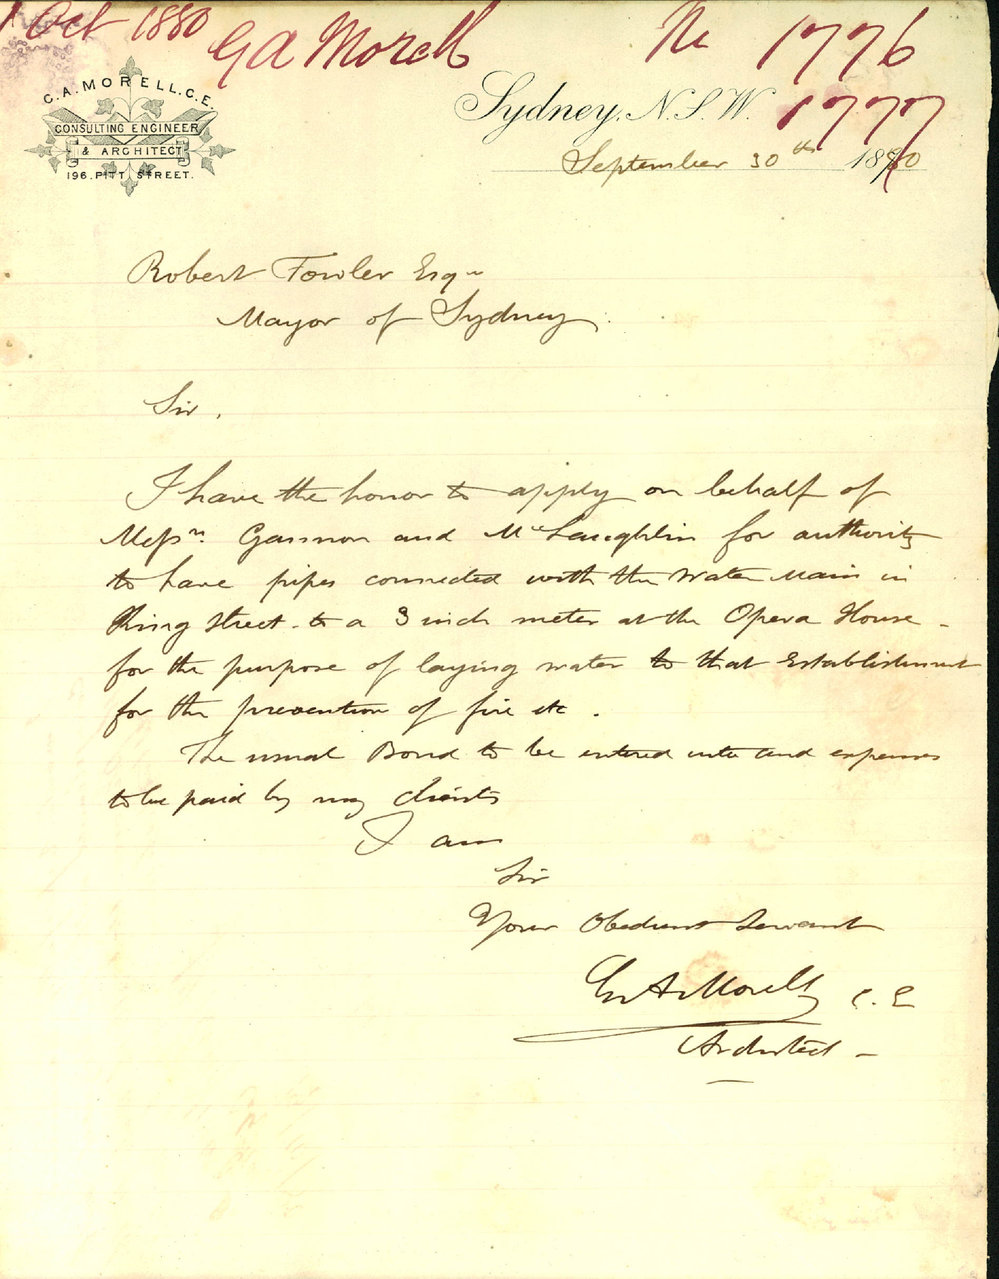 1 Oct 1880 GA Morell No 1776
1777
G.A. MORELL. C.E.
CONSULTING ENGINEER
& ARCHITECT
196. PITT STREET.
Sydney, N.S.W.
September 30th 1880
Robert Fowler Esqr
Mayor of Sydney.
Sir,
I have the honor to apply on behalf of
Messrs. and McLaughlin for authority
to have pipes connected with the Water Main in
King Street to a 3 inch meter at the Opera House -
for the purpose of laying water to that Establishment
for the prevention of fire etc.
The usual Bond to be entered into and expenses
to be paid by my clients
I am
Sir
Your Obedient Servant
Geo A Morell C.E
Architect -